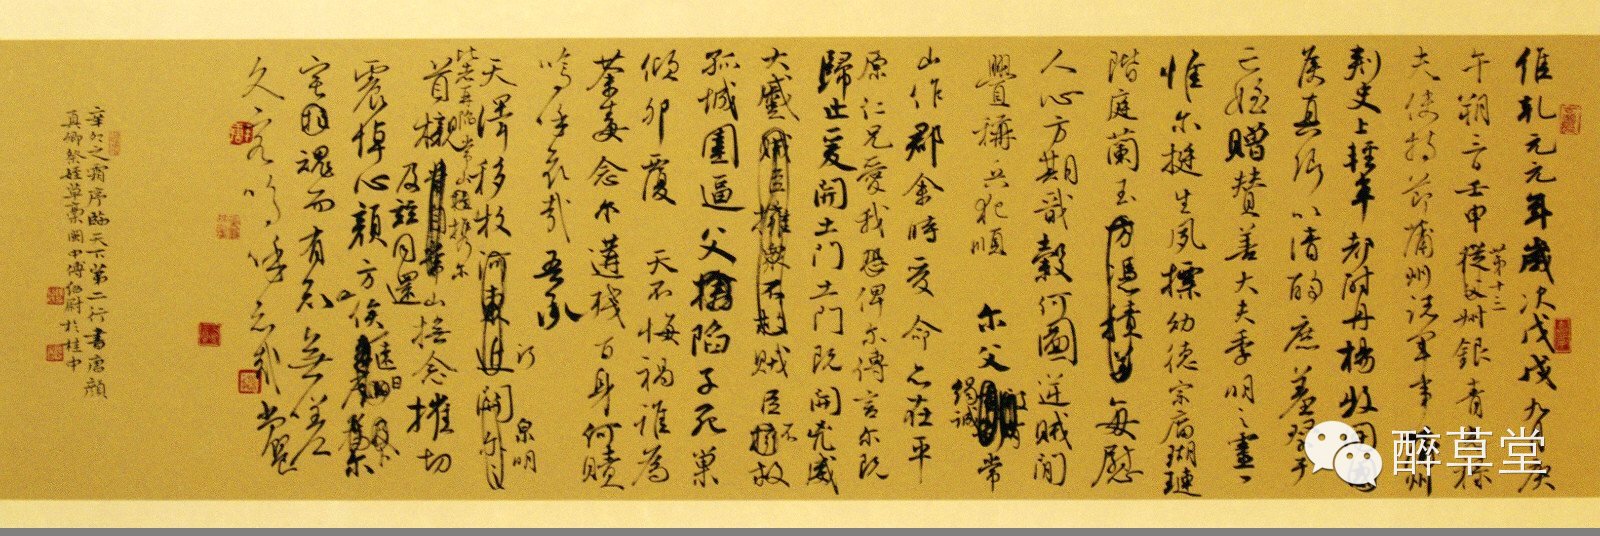 維乾元元年歲次戊戌九月庚
午朔三日壬申第十三從父州銀青光祿
夫使持節蒲州諸軍事蒲州
刺史上輕車都尉丹楊
侯真卿以清酌庶羞祭于
亡姪贈贊善大夫季明之靈曰
惟爾挺生夙標幼德宗廟瑚璉
階庭蘭玉方憑積善每慰
人心方期戩穀何圖逆賊閒
釁稱兵犯順 爾父竭誠常
山作郡余時受命亦在平
原仁兄愛我恐俾爾傳言爾既
歸止爰開土門土門既開兇威
大蹙賊臣擁眾不救賊臣不救
孤城圍逼父擒陷子死巢
傾卵覆 天不悔禍誰為
荼毒念爾遘殘百身何贖
嗚乎哀哉吾承
天澤移牧河東近關爾泉明
比者再陷常山攜爾
首櫬及茲同還山撫念摧切
震悼心顏方俟遠日爾
宅魂而有知無嗟
久客嗚呼哀哉尚饗
辛卯之霜序臨天下第二行書唐顏
真卿祭姪草稾關中傅伯尉於桂中
醉草堂